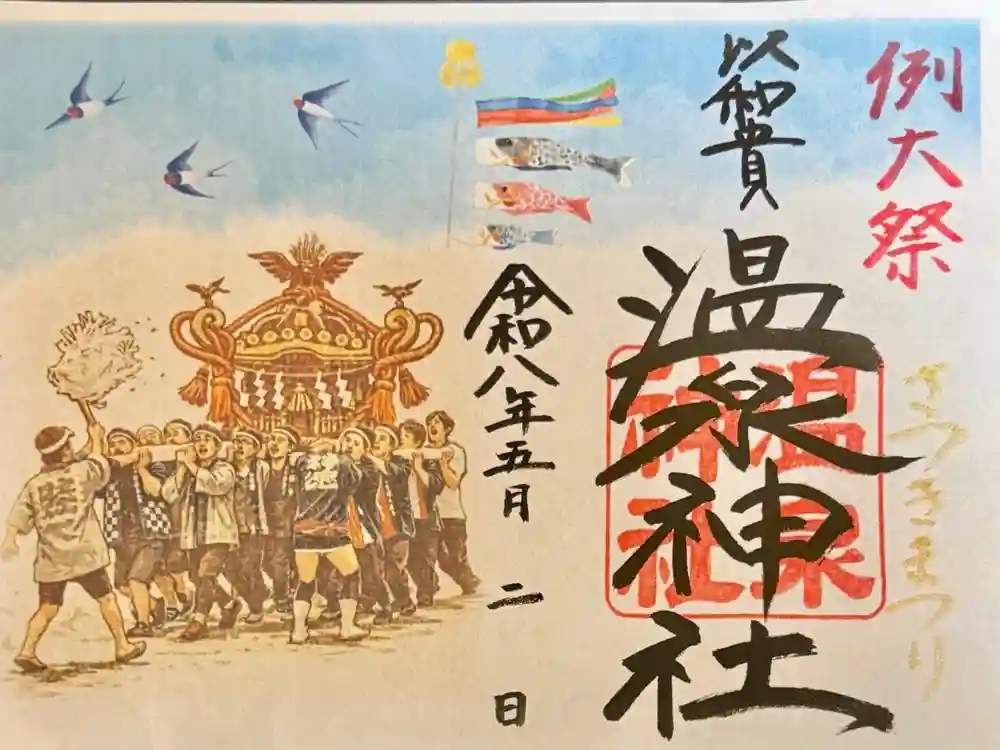 例大祭
さつきまつり
以和貴
温泉神社
温泉
神社
令和八年五月二日